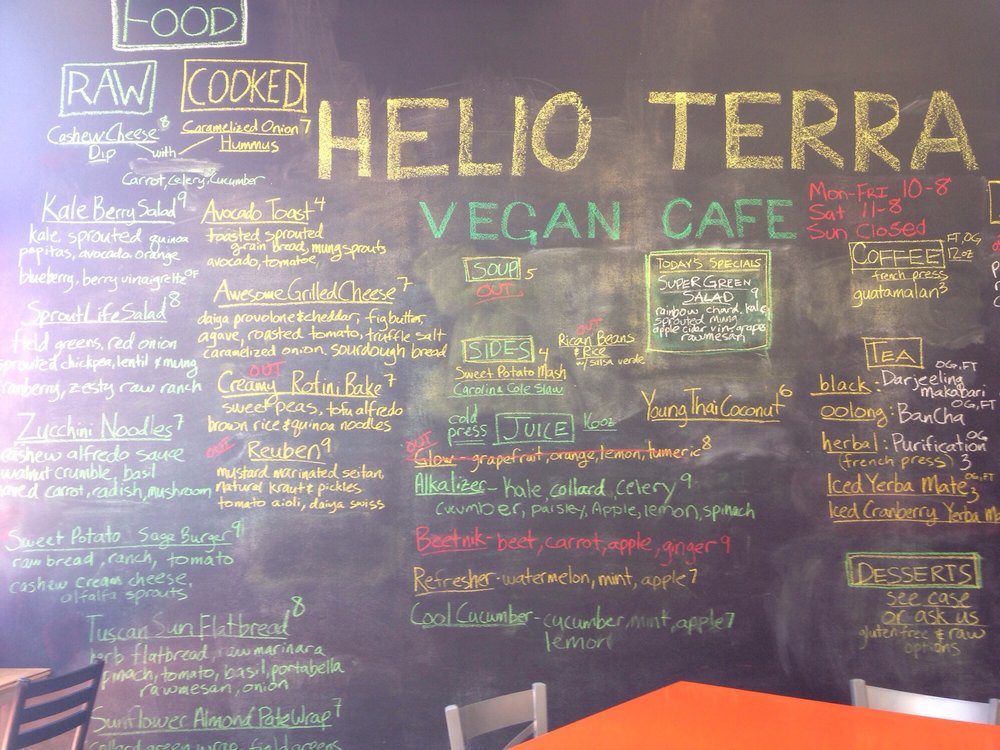 FOOD
RAW
COOKED
Cashew Cheese 8
Dip
with
Caramelized Onion 7
Hummus
Carrot, Celery, Cucumber
Kale Berry Salad 9
kale, sprouted quinoa
papitas, avocado, orange
blueberry, berry vinaigrette OF
Sprout Life Salad 8
field greens, red onion
sprouted chickpea, lentil & mung
cranberry, zesty raw ranch
Zucchini Noodles 7
cashew alfredo sauce
walnut crumble, basil
carrot, radish, mushroom
Sweet Potato Sage Burger 9
raw bread, ranch, tomato
cashew cream cheese,
alfalfa sprouts
Tuscan Sun Flatbread 8
herb flatbread, raw marinara
spinach, tomato, basil, portabella
rawmesan, onion
Sunflower Almond Pate Wrap 7
collard green wrap, field greens
Avocado Toast 4
toasted sprouted
grain bread, mung sprouts
avocado, tomatoe
Awesome Grilled Cheese 7
daiya provolone & cheddar, fig butter,
agave, roasted tomato, truffle salt
caramelized onion, sourdough bread
OUT
Creamy Rotini Bake 7
sweet peas, tofu alfredo
brown rice & quinoa noodles
OUT
Reuben 9
mustard marinated seitan,
natural kraut & pickles
tomato aioli, daiya swiss
HELIO TERRA
VEGAN CAFE
Mon-Fri 10-8
Sat 11-8
Sun Closed
SOUP 5
OUT
SIDES 4
Sweet Potato Mash
Carolina Cole Slaw
OUT
Rican Beans
& Rice
w/ salsa verde
TODAY'S SPECIALS
SUPER GREEN
SALAD 9
rainbow chard, kale
sprouted mung
apple cidar vin, grapes
rawmesan
Young Thai Coconut 6
cold
press
JUICE
16oz
OUT
Glow - grapefruit, orange, lemon, tumeric 8
Alkalizer - kale, collard, celery 9
cucumber, parsley, Apple, lemon, spinach
Beetnik - beet, carrot, apple, ginger 9
Refresher - watermelon, mint, apple 7
Cool Cucumber - cucumber, mint, apple 7
lemon
COFFEE
FT, OG
12oz
french press
guatamalan 3
TEA
OG, FT
black: Darjeeling
makaibari
OG, FT
oolong: BanCha
OG
herbal: Purification
(french press) 3
OG, FT
Iced Yerba Mate 3
Iced Cranberry Yerba
DESSERTS
see case
or ask us
gluten free & raw
options